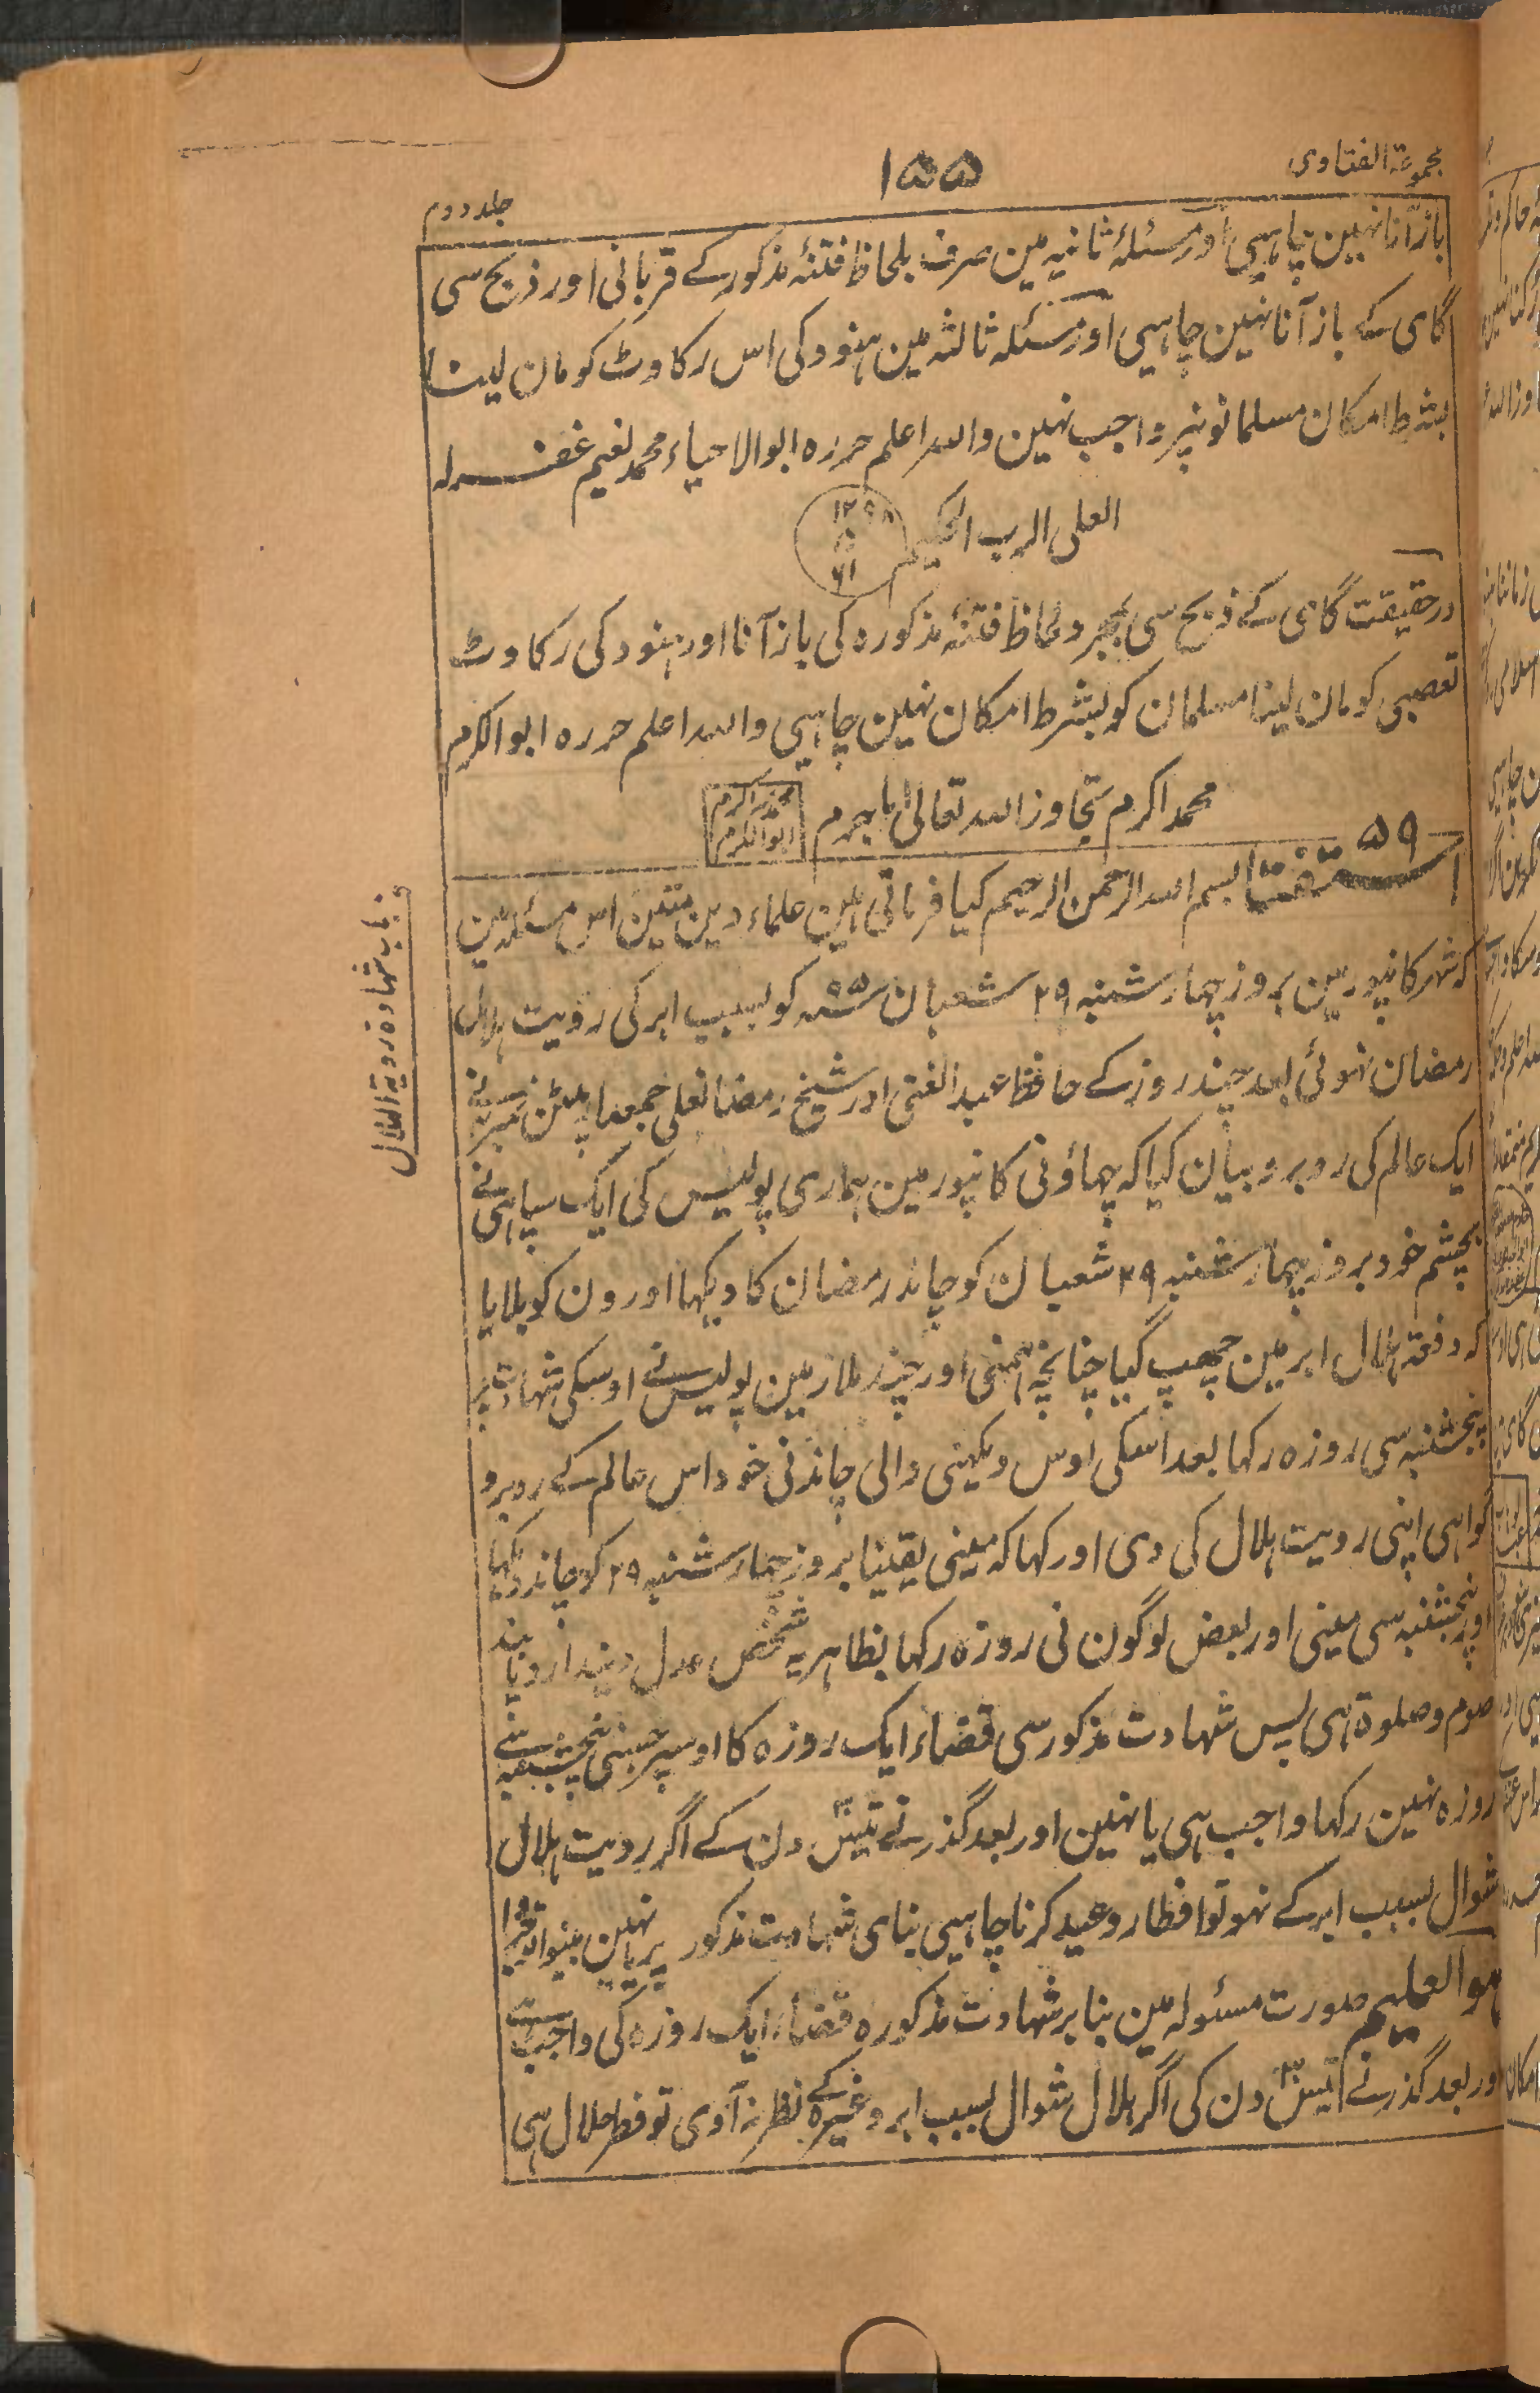 مجموعۃ الفتاوی
۱۵۵
جلد دوم
باز آنا نہین چاہیی اور مسئلۂ ثانیہ مین صرف بلحاظ فتنۂ مذکور کے قربانی اور ذبح سی
گای کے باز آنا نہین چاہیی اور مسئلہ ثالثہ مین ہنود کی اس رکاوٹ کو مان لینا
بشرط امکان مسلمانونپر واجب نہین واللہ اعلم حررہ ابوالاحیاء محمد نعیم غفر لہ
العلی الرب الحکیم
درحقیقت گای کے ذبح سی بمجرد لحاظ فتنۂ مذکورہ کی باز آنا اور ہنود کی رکاوٹ
تعصبی کو مان لینا مسلمان کو بشرط امکان نہین چاہیی واللہ اعلم حررہ ابو الکرم
محمد اکرم تجاوز اللہ تعالی عما جرم
محمد اکرم
ابو الکرم
۵۹
استفتا بسم اللہ الرحمن الرحیم کیا فرماتی ہین علماء دین متین اس مسئلہ مین
کہ شہر کانپور مین بروز چہار شنبہ ۲۹ شعبان ۹۵ سنہ کو بسبب ابر کی رویت ہلال
رمضان نہوئی بعد چند روز کے حافظ عبد الغنی اور شیخ رمضانعلی جمعدار پلٹن
ایک عالم کی روبرو بیان کیا کہ چھاؤنی کانپور مین ہماری پولیس کی ایک سپاہی نے
بچشم خود بروز چہار شنبہ ۲۹ شعبان کو چاند رمضان کا دیکھا اور ون کو بلایا
کہ دفعۃ ہلال ابر مین چھپ گیا چنانچہ ہمنی اور چند ملازمین پولیس نے اوسکی شہادت پر
پنجشنبہ سی روزہ رکھا بعد اسکی اوس دیکہنی والی چاندنی خود اس عالم کے روبرو
گواہی اپنی رویت ہلال کی دی اور کہا کہ مینی یقینا بروز چہار شنبہ ۲۹ کو چاند دیکھا
اور پنجشنبہ سی مینی اور بعض لوگون نی روزہ رکھا بظاہر یہ شخص عدل دیندار و پابند
صوم وصلوۃ ہی پس شہادت مذکور سی قضاء ایک روزہ کا اوسپر جسنی پنجشنبہ سے
روزہ نہین رکھا واجب ہی یا نہین اور بعد گذرنے تیس ۳۰ دن کے اگر رویت ہلال
شوال بسبب ابر کے نہو تو افطار و عید کرنا چاہیی بنای شہادت مذکور پر یا نہین بینوا توجروا
ہو العلیم صورت مسئولہ مین بنابر شہادت مذکورہ قضاء ایک روزہ کی واجب ہے
اور بعد گذرنے تیس ۳۰ دن کی اگر ہلال شوال بسبب ابر وغیرہ کے نظر نہ آوی تو فطر حلال ہی
ف باب شہادۃ رویۃ الہلال